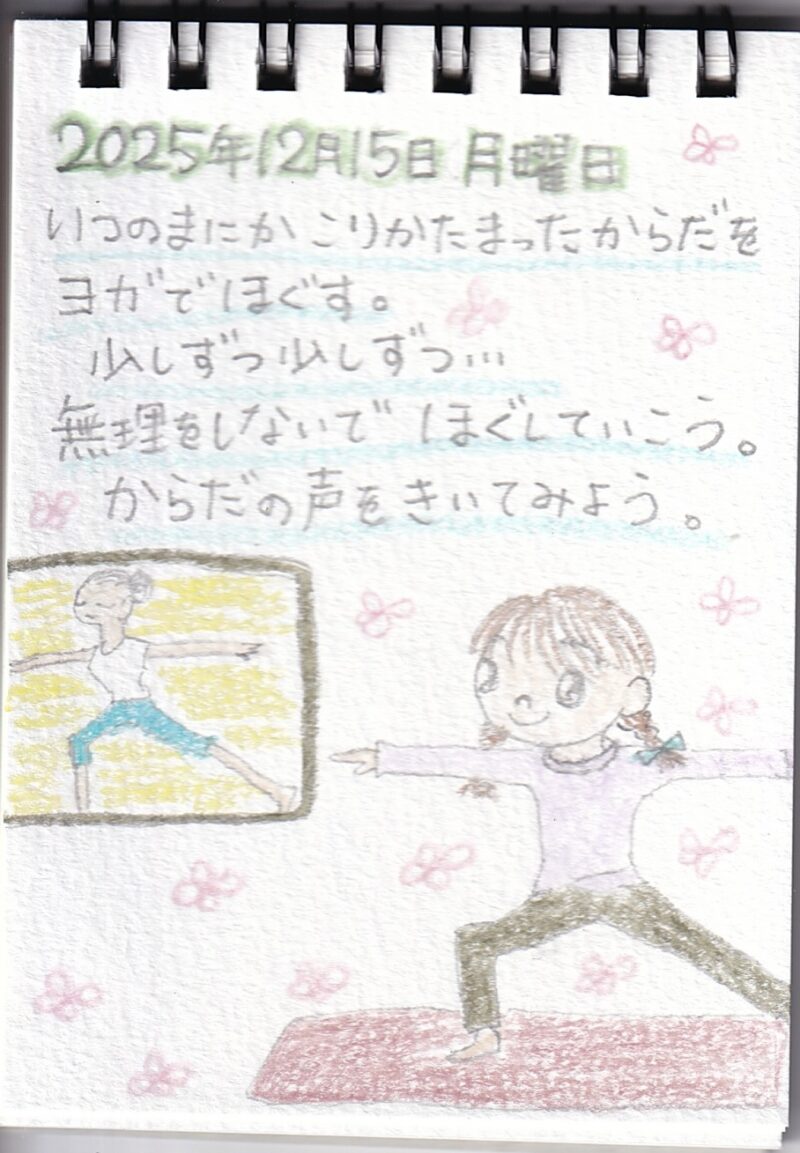 2025年12月15日 月曜日
いつのまにか こりかたまったからだを
ヨガでほぐす。
少しずつ少しずつ...
無理をしないで ほぐしていこう。
からだの声をきいてみよう。